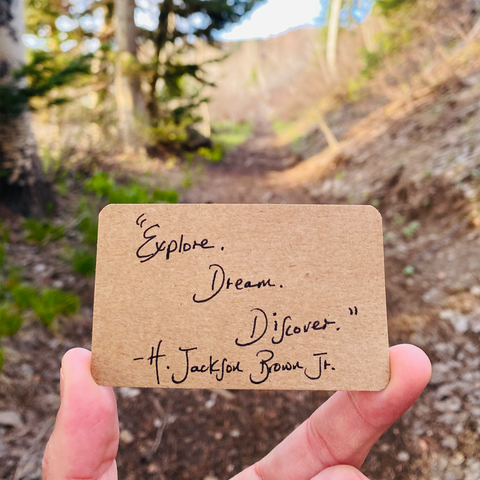 "Explore.
Dream.
Discover."
-H. Jackson Brown Jr.